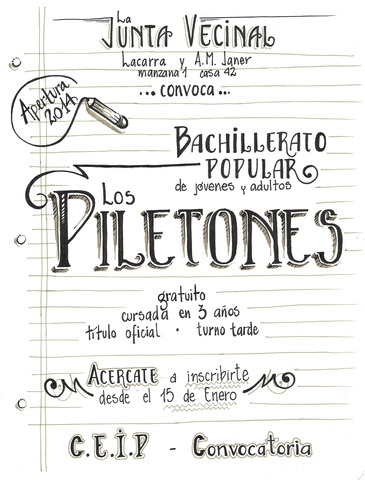 La
JUNTA VECINAL
Lacarra y A.M. Janer
manzana 1 casa 42
... CONVOCA ...
Apertura
2014
BACHILLERATO
POPULAR
de jóvenes y adultos
LOS
PILETONES
gratuito
cursada en 3 años
título oficial · turno tarde
ACERCATE a inscribirte
desde el 15 de Enero
C.E.I.P - Convocatoria